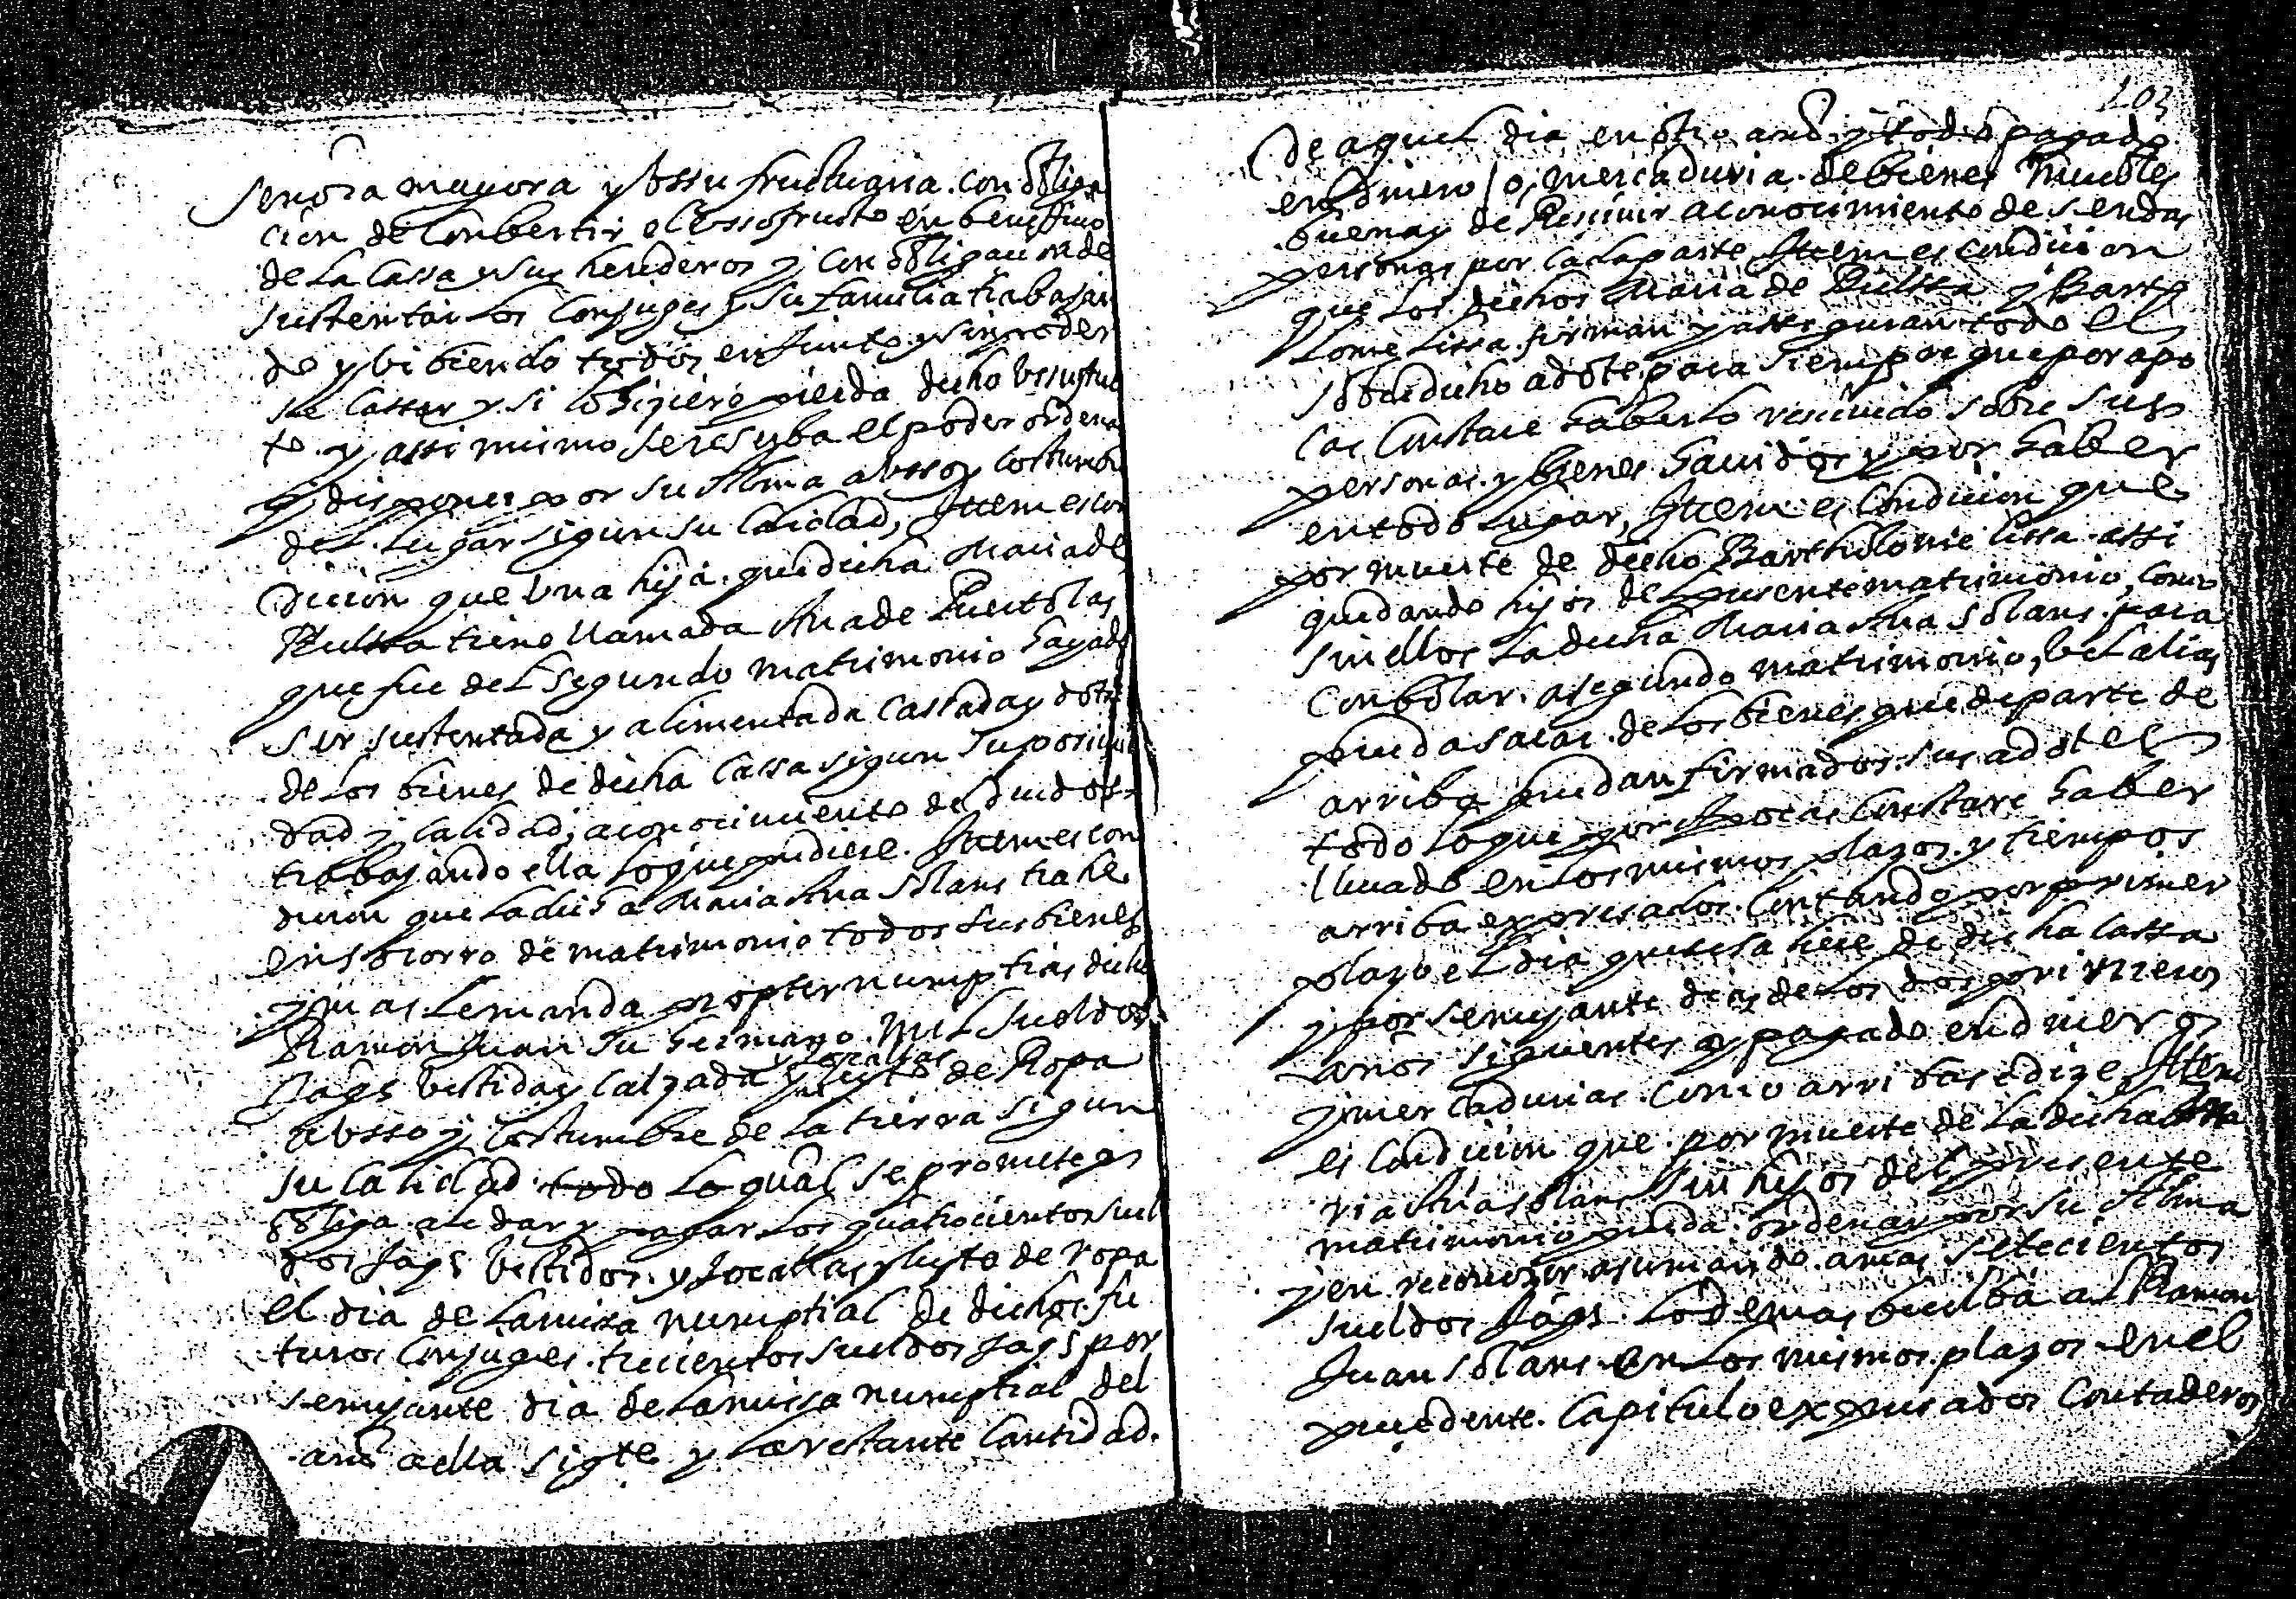 señora mayora y ussufructuaria con obliga
cion de conbertir el ussofructo en beneficio
de la cassa y sus herederos y con obligacion de
sustentar los conjuges y su familia trabajan
do y bibiendo todos en junto y sin poder
se cassar y si lo hiciere pierda dicho ussufruc
to y assi mismo se reserba el poder ordenar
y disponer por su alma a usso y costumbre
del lugar sigun su calidad, Ittem es con
dicion que una hija que dicha Maria de
tiene llamada Ana de Puertolas
que fue del segundo matrimonio haya de
ser sustentada y alimentada cassada y dota
de los bienes de dicha cassa sigun su posivili
dad y calidad, a conocimiento de deudos
trabajando ella lo que pudiese. Ittem es con
dicion que la dicha Maria Ana Solans trahe
en socorro de matrimonio todos sus bienes
y mas le manda propter numptias dicho
Ramon Juan su hermano mil sueldos
Jaqs bestida y calzada y jocallas y lleyto de Ropa
a usso y costumbre de la tierra sigun
su calidad todo lo qual se promete y
obliga a le dar y pagar los quatrocientos suel
dos Jaqs bestidos y jocallas y lleyto de ropa
el dia de la missa numptial de dichos fu
turos conjuges trecientos sueldos Jaqs por
semejante dia de la missa numptial del
año a ella sigte y la restante cantidad
103
de aquel dia en otro año y todo pagado
en dinero /o/ mercaduria de bienes muebles
buenas de Rescivir a conocimiento de sendas
personas por cada parte Ittem es condicion
que los dichos Maria de y Barto
lome Lissa firman y asseguran todo el
sobredicho adote para siempre que por apo
cas constare haberlo rescivido sobre sus
personas y bienes havidos y por haber
en todo lugar, Ittem es condicion que
por muerte de dicho Bartholome Lissa assi
quedando hijos del presente matrimonio, como
sin ellos la dicha Maria Ana Solans para
conbolar a segundo matrimonio, vel alias
pueda sacar de los bienes que de parte de
arriba quedan firmados sus adotes
todo lo que por apocas constare haber
llevado en los mismos plazos y tiempos
arriba expresados contando por primer
plazo el dia que se saliere de dicha cassa
y por semejante dias de los dos primeros
años siguientes y pagado en dineros
y mercadurias como arriba se dize, Ittem
es condicion que por muerte de la dicha Ma
ria Ana Solans sin hijos del presente
matrimonio pueda ordenar por su alma
y en reconozer a su marido a mas setecientos
sueldos Jaqs lo demas buelba al Ramon
Juan Solans en los mismos plazos en el
precedente capitulo expresados contaderos